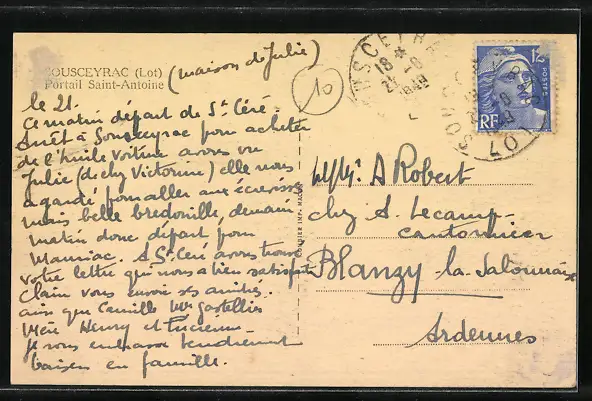 SOUSCEYRAC (Lot)
Portail Saint-Antoine
(maison de Julie)
10
SOUSCEYRAC
18 *
LOT
12
POSTES
RF
le 21.
Ce matin départ de St Céré.
Arrêt à Sousceyrac pour acheter
de l'huile voiture avons vu
Julie (de chez Victorine) elle nous
a gardé pour aller aux écrevisses
mais belle bredouille, demain
matin donc départ pour
Mauriac. A St Céré avons trouvé
votre lettre qui nous a bien satisfaits
Claim vous envoie ses amitiés.
ainsi que Camille Mme
Henry et Lucienne -
je vous embrasse tendrement
baisers en famille.
A Robert
chez A. Lecamp-
cantonnier
Blanzy la Salonnaise
Ardennes